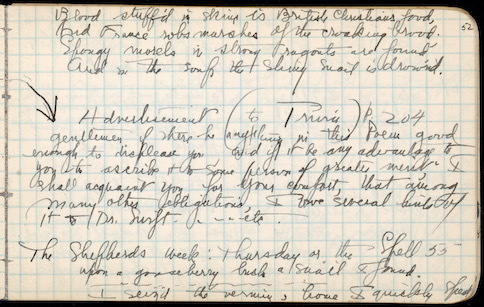 Blood stuff'd in skins is British Christians food,
And France robs marshes of the croaking brood.
Spongy morels in strong ragousts are found
And in the soup the slimy snail is drown'd.
52
Advertisement (to Trivia) P. 204
gentlemen if there be anything in this Poem good
enough to displease you and if it be any advantage to
you to ascribe it to some person of greater merit I
shall acquaint you for your comfort, that among
many other obligations, I owe several hints of
it to Dr. Swift. - - - etc.
The Shepherds Week: Thursday or the Spell 55
upon a gooseberry bush a snail I found
I seiz'd the vermin, home I quickly sped